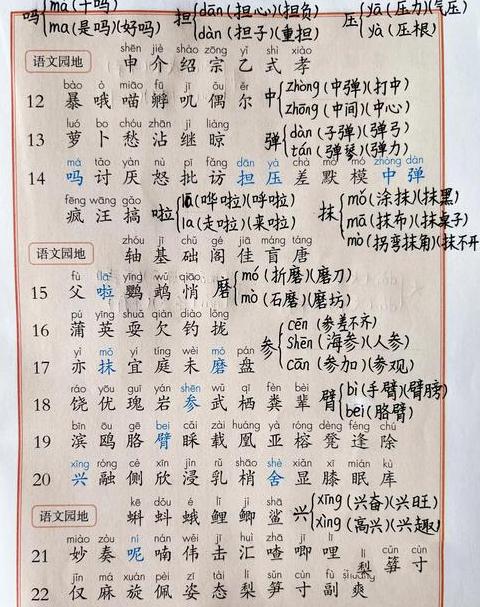 吗{má (干吗)
ma (是吗)(好吗)
担{dān (担心)(担负
dàn (担子)(重担)
压{yā (压力)(气压
yà (压根)
shēn jiè shào zōng yǐ shì xiào
语文园地 申 介 绍 宗 乙 式 孝
bào ò miāo fū jī ǒu ěr
12 暴 哦 喵 孵 叽 偶 尔
中{zhòng (中弹)(打中
zhōng (中间)(中心)
luó bo chóu zhān jì liàng
13 萝 卜 愁 沾 继 晾
弹{dàn (子弹)(弹弓
tán (弹琴)(弹力)
má tǎo yàn nù pī fǎng dān yā chà mò mó zhòng dàn
14 吗 讨 厌 怒 批 访 担 压 差 默 模 中 弹
fēng wāng gǎo
疯 汪 搞
啦{lā (哗啦)(呼啦)
la (走啦)(来啦)
抹{mǒ (涂抹)(抹黑)
mā (抹布)(抹桌子)
mò (拐弯抹角)(抹不开
zhóu jī chǔ gé jiā máng táng
语文园地 轴 基 础 阁 佳 盲 唐
fù la yīng wǔ qiāo
15 父 啦 鹦 鹉 悄
磨{mó (折磨)(磨刀)
mò (石磨)(磨坊)
pú yīng shuǎ qiàn diào lǒng
16 蒲 英 耍 欠 钓 拢
参{cēn (参差不齐)
shēn (海参)(人参)
cān (参加)(参观)
yì mǒ yí tíng wèi mó pán
17 亦 抹 宜 庭 未 磨 盘
ráo yōu guī yán shēn wǔ qī fèn bèi
18 饶 优 瑰 岩 参 武 栖 粪 辈
臂{bì (手臂)(臂膀)
bei (胳臂)
bīn ōu gē bei cǎi zài huáng yà róng dèng féng chú
19 滨 鸥 胳 臂 睬 载 凰 亚 榕 凳 逢 除
xīng róng cè xīn jìn rǔ shāo shè xiǎn xī mián kù
20 兴 融 侧 欣 浸 乳 梢 舍 显 膝 眠 库
kē dǒu é lǐ jì shā
语文园地 蝌 蚪 蛾 鲤 鲫 鲨
兴{xīng (兴奋)(兴旺)
xìng (高兴)(兴趣)
miào zòu ní nán wěi jī huì zhā jī lǐ
21 妙 奏 呢 喃 伟 击 汇 喳 唧 哩
jǐn má xuán pèi zī tài lí sǔn cùn fù shuǎng
22 仅 麻 旋 佩 姿 态 梨 笋 寸 副 爽